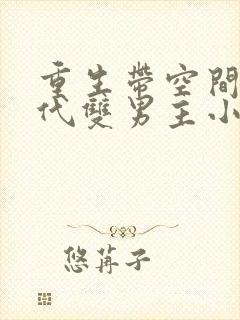 重生帶空間
代雙男主小
悠苒子